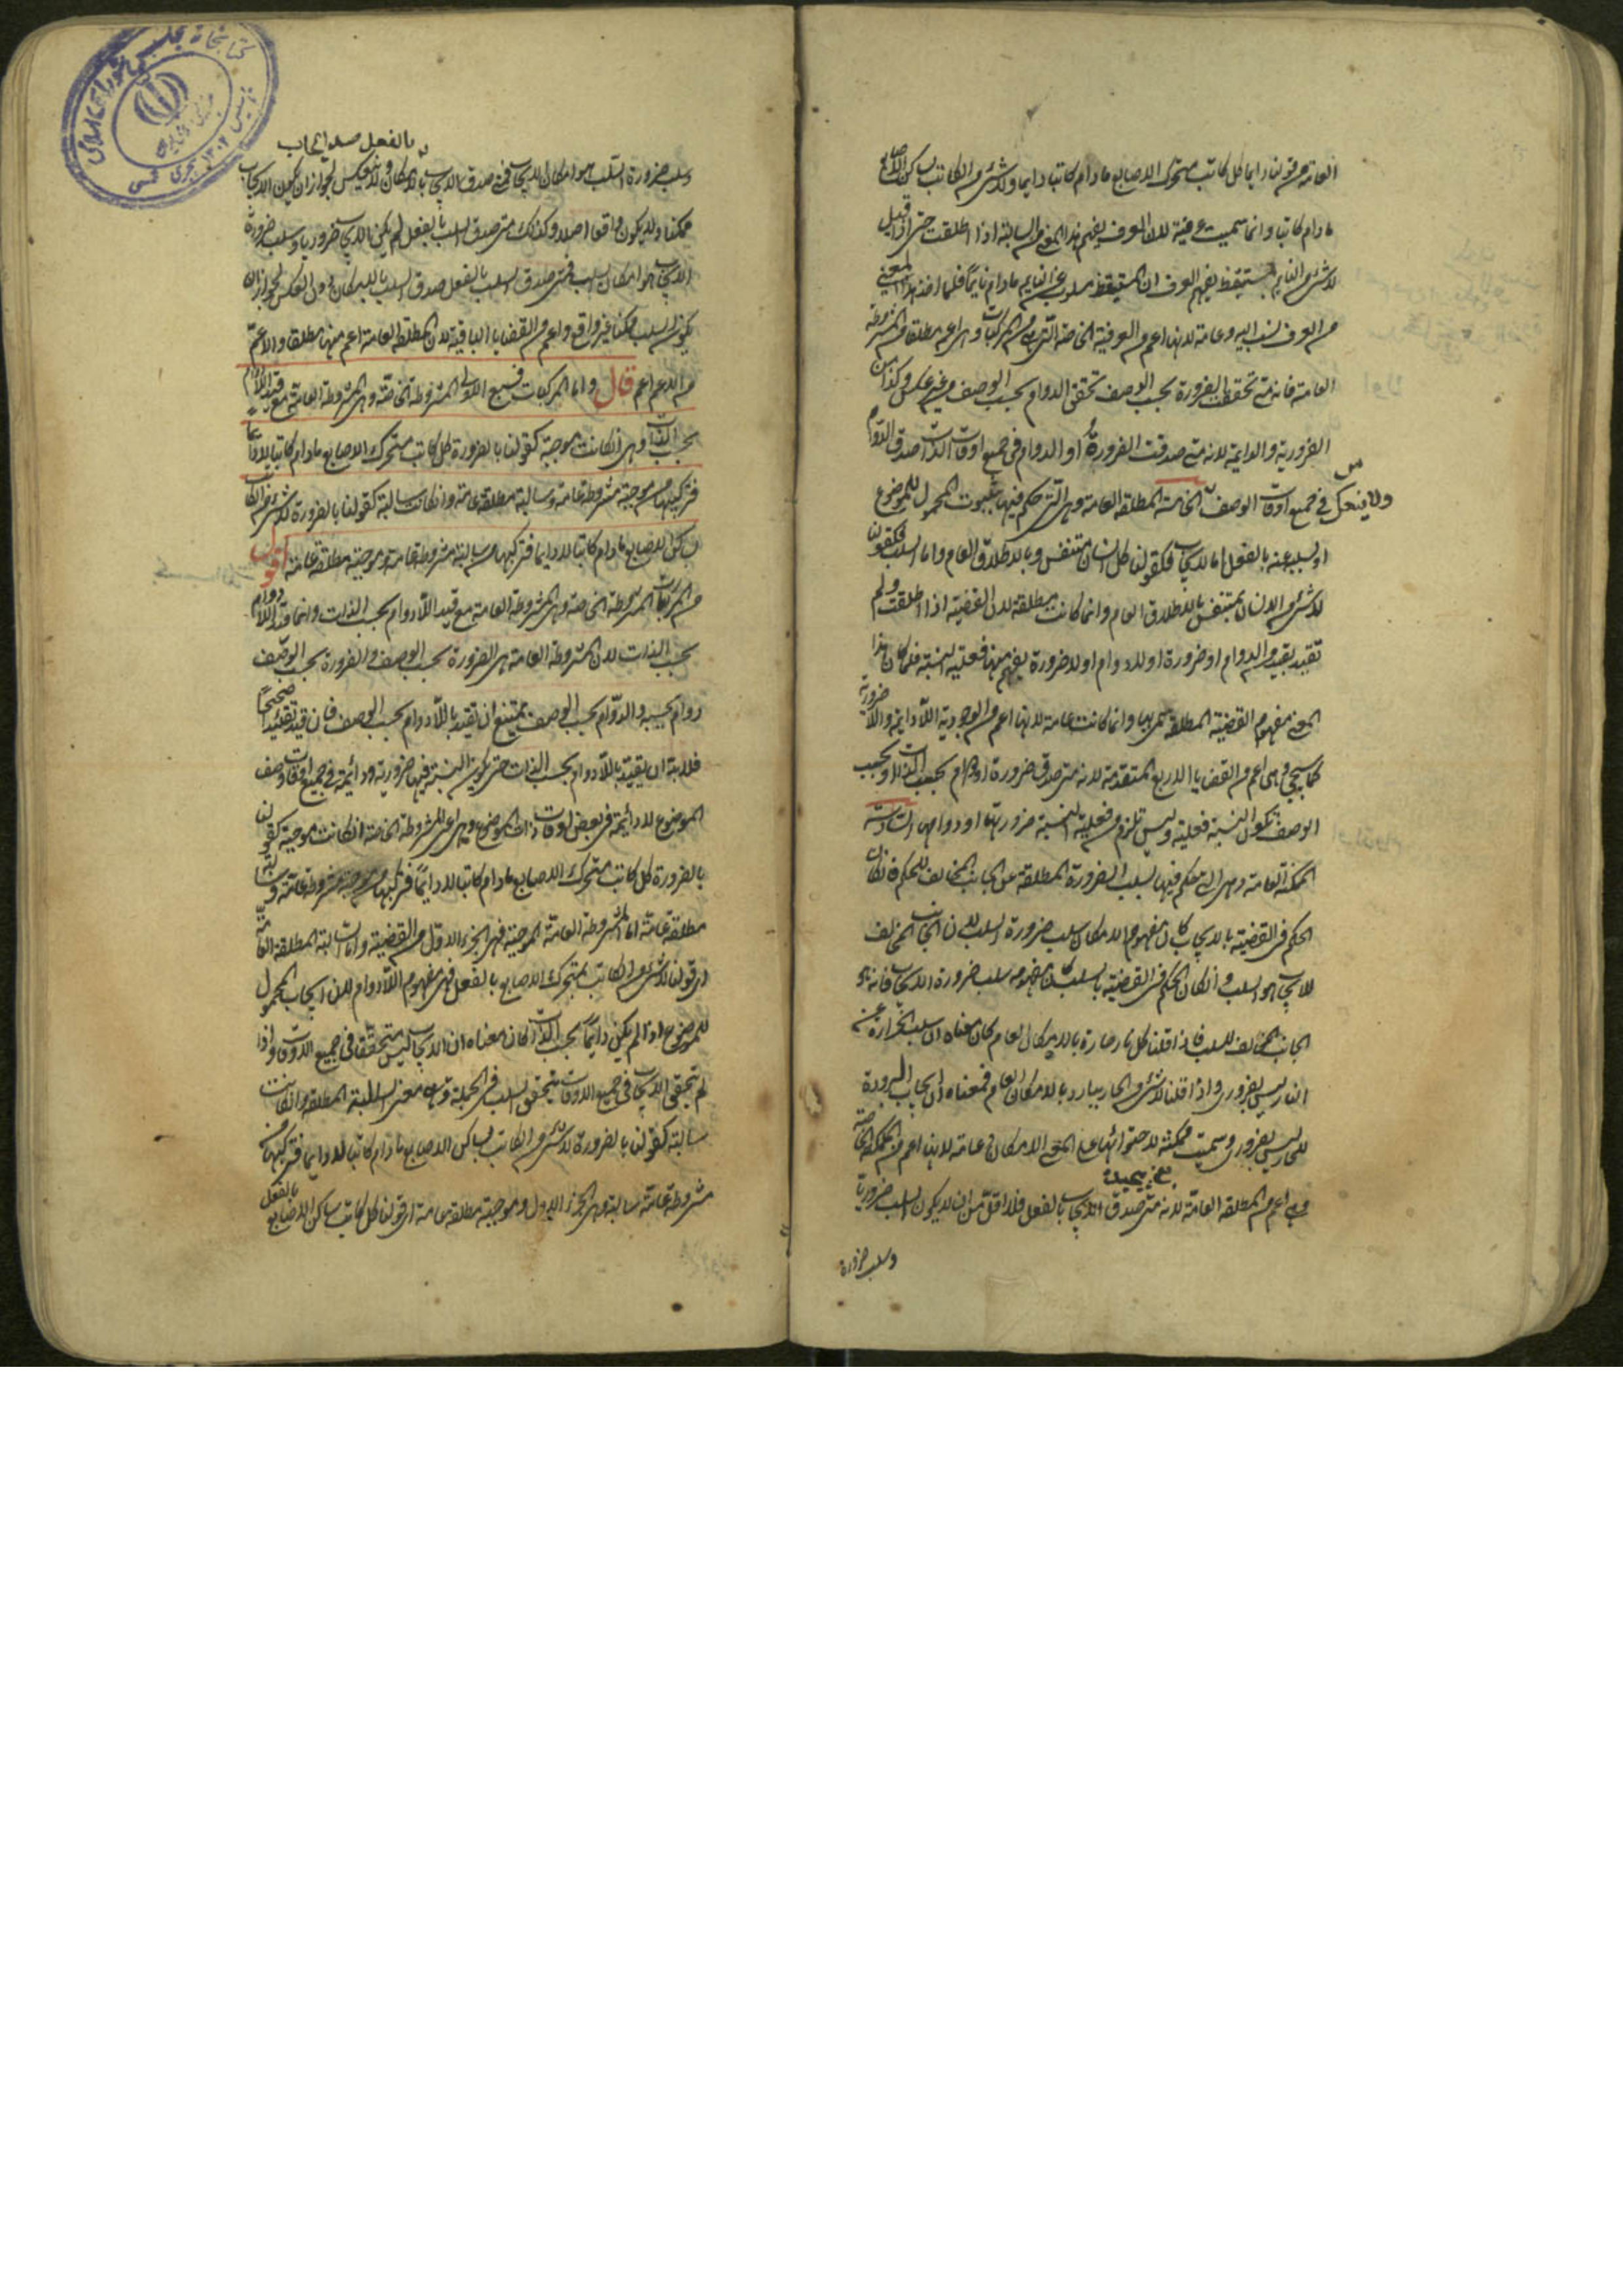 العامة من قولنا دايما كل كاتب متحرك الاصابع مادام كاتبا دايما ولا شئ من الكاتب بساكن الاصابع
مادام كاتبا وانما سميت عرفية لان العرف يفهم هذا المعنى من السالبة اذا اطلقت حتى اذا قيل
لا شئ من النايم بمستيقظ يفهم العرف ان المستيقظ مسلوب عن النايم مادام نايما فلما اخذ هذا المعنى
من العرف نسب اليه وعامة لانها اعم من العرفية الخاصة التى هى من المركبات وهى اعم مطلقا من المشروطة
العامة فانه متى تحققت الضرورة بحسب الوصف تحقق الدوام بحسب الوصف من غير عكس وكذا من
الضرورية والدايمة لانه متى صدقت الضرورة او الدوام فى جميع اوقات الذات صدق الدوام
فى جميع اوقات الوصف ولا ينعكس الخامسة المطلقة العامة وهى التى حكم فيها بثبوت المحمول للموضوع
او سلبه عنه بالفعل اما الايجاب فكقولنا كل انسان متنفس وبالاطلاق العام واما السلب فكقولنا
لا شئ من الانسان بمتنفس بالاطلاق العام وانما كانت مطلقة لان القضية اذا اطلقت ولم
تقيد بقيد من الدوام او ضرورة او لادوام او لا ضرورة يفهم منها فعلية النسبة فلما كان هذا
المعنى مفهوم القضية المطلقة سمى بها وانما كانت عامة لانها اعم من الوجودية اللادايمة واللاضرورية
كما سيجئ وهى اعم من القضايا الاربع المتقدمة لانه متى صدق ضرورة او دوام بحسب الذات او بحسب
الوصف تكون النسبة فعلية وليس تلزم من فعلية النسبة ضرورتها او دوامها السادسة
الممكنة العامة وهى التى حكم فيها بسلب الضرورة المطلقة عن الجانب المخالف للحكم فان كان
الحكم فى القضية بالايجاب كان مفهوم الامكان سلب ضرورة السلب لان الجانب المخالف
للايجاب هو السلب وان كان الحكم فى القضية بالسلب كان مفهومه سلب ضرورة الايجاب فانه هو
الجانب المخالف للسلب فاذا قلنا كل نار حارة بالامكان العام كان معناه ان سلب الحرارة عن
النار ليس بضرورى واذا قلنا لا شئ من الحار ببارد بالامكان العام فمعناه ان ايجاب البرودة
للحار ليس بضرورى وسميت ممكنة لاحتوائها على المعنى الامكان وعامة لانها اعم من الممكنة الخاصة
وهى اعم من المطلقة العامة لانه متى صدق الايجاب بالفعل فلا اقل من ان لا يكون السلب ضروريا
وسلب ضرورة
بالفعل صدق ايجاب
وسلب ضرورة السلب هو امكان الايجاب فمتى صدق الايجاب بالامكان ولا ينعكس لجواز ان يكون الايجاب
ممكنا ولا يكون واقعا اصلا وكذلك متى صدق السلب بالفعل لم يكن الايجاب ضروريا وسلب ضرورة
الايجاب هو امكان السلب فمتى صدق السلب بالفعل صدق السلب بالامكان دون العكس لجواز ان
يكون السلب ممكنا غير واقع واعم من القضايا الباقية لان المطلقة العامة اعم منها مطلقا والاعم
من الاعم اعم قال واما المركبات فسبع الاولى المشروطة الخاصة وهى المشروطة العامة مع قيد اللادوام
بحسب الذات وهى ان كانت موجبة كقولنا بالضرورة كل كاتب متحرك الاصابع مادام كاتبا لا دايما
فتركيبها من موجبة مشروطة عامة وسالبة مطلقة عامة وان كانت سالبة كقولنا بالضرورة لا شئ من الكاتب
بساكن الاصابع مادام كاتبا لا دايما فتركيبها من سالبة مشروطة عامة وموجبة مطلقة عامة اقول
من المركبات المشروطة الخاصة وهى المشروطة العامة مع قيد اللادوام بحسب الذات وانما قيد اللادوام
بحسب الذات لان المشروطة العامة هى الضرورة بحسب الوصف والضرورة بحسب الوصف
دوام بحسبه والدوام بحسب الوصف يمتنع ان يقيد باللادوام بحسب الوصف فان قيد تقييدا صحيحا
فلا بد ان يقيد باللادوام بحسب الذات حتى يكون النسبة فيها ضرورية ودائمة فى جميع اوقات وصف
الموضوع لا دائمة فى بعض اوقات ذات الموضوع وهى اعنى المشروطة الخاصة ان كانت موجبة كقولنا
بالضرورة كل كاتب متحرك الاصابع مادام كاتبا لا دايما فتركيبها من موجبة مشروطة عامة وسالبة
مطلقة عامة اما المشروطة العامة الموجبة فهى الجزء الاول من القضية واما السالبة المطلقة العامة
اى قولنا لا شئ من الكاتب بمتحرك الاصابع بالفعل فهى مفهوم اللادوام لان ايجاب المحمول
للموضوع اذا لم يكن دايما بحسب الذات كان معناه ان الايجاب ليس متحققا فى جميع الاوقات واذا
لم يتحقق الايجاب فى جميع الاوقات يتحقق السلب فى الجملة وهى معنى السالبة المطلقة وان كانت
سالبة كقولنا بالضرورة لا شئ من الكاتب بساكن الاصابع مادام كاتبا لا دايما فتركيبها من
مشروطة عامة سالبة وهى الجزء الاول وموجبة مطلقة عامة اى قولنا كل كاتب ساكن الاصابع بالفعل